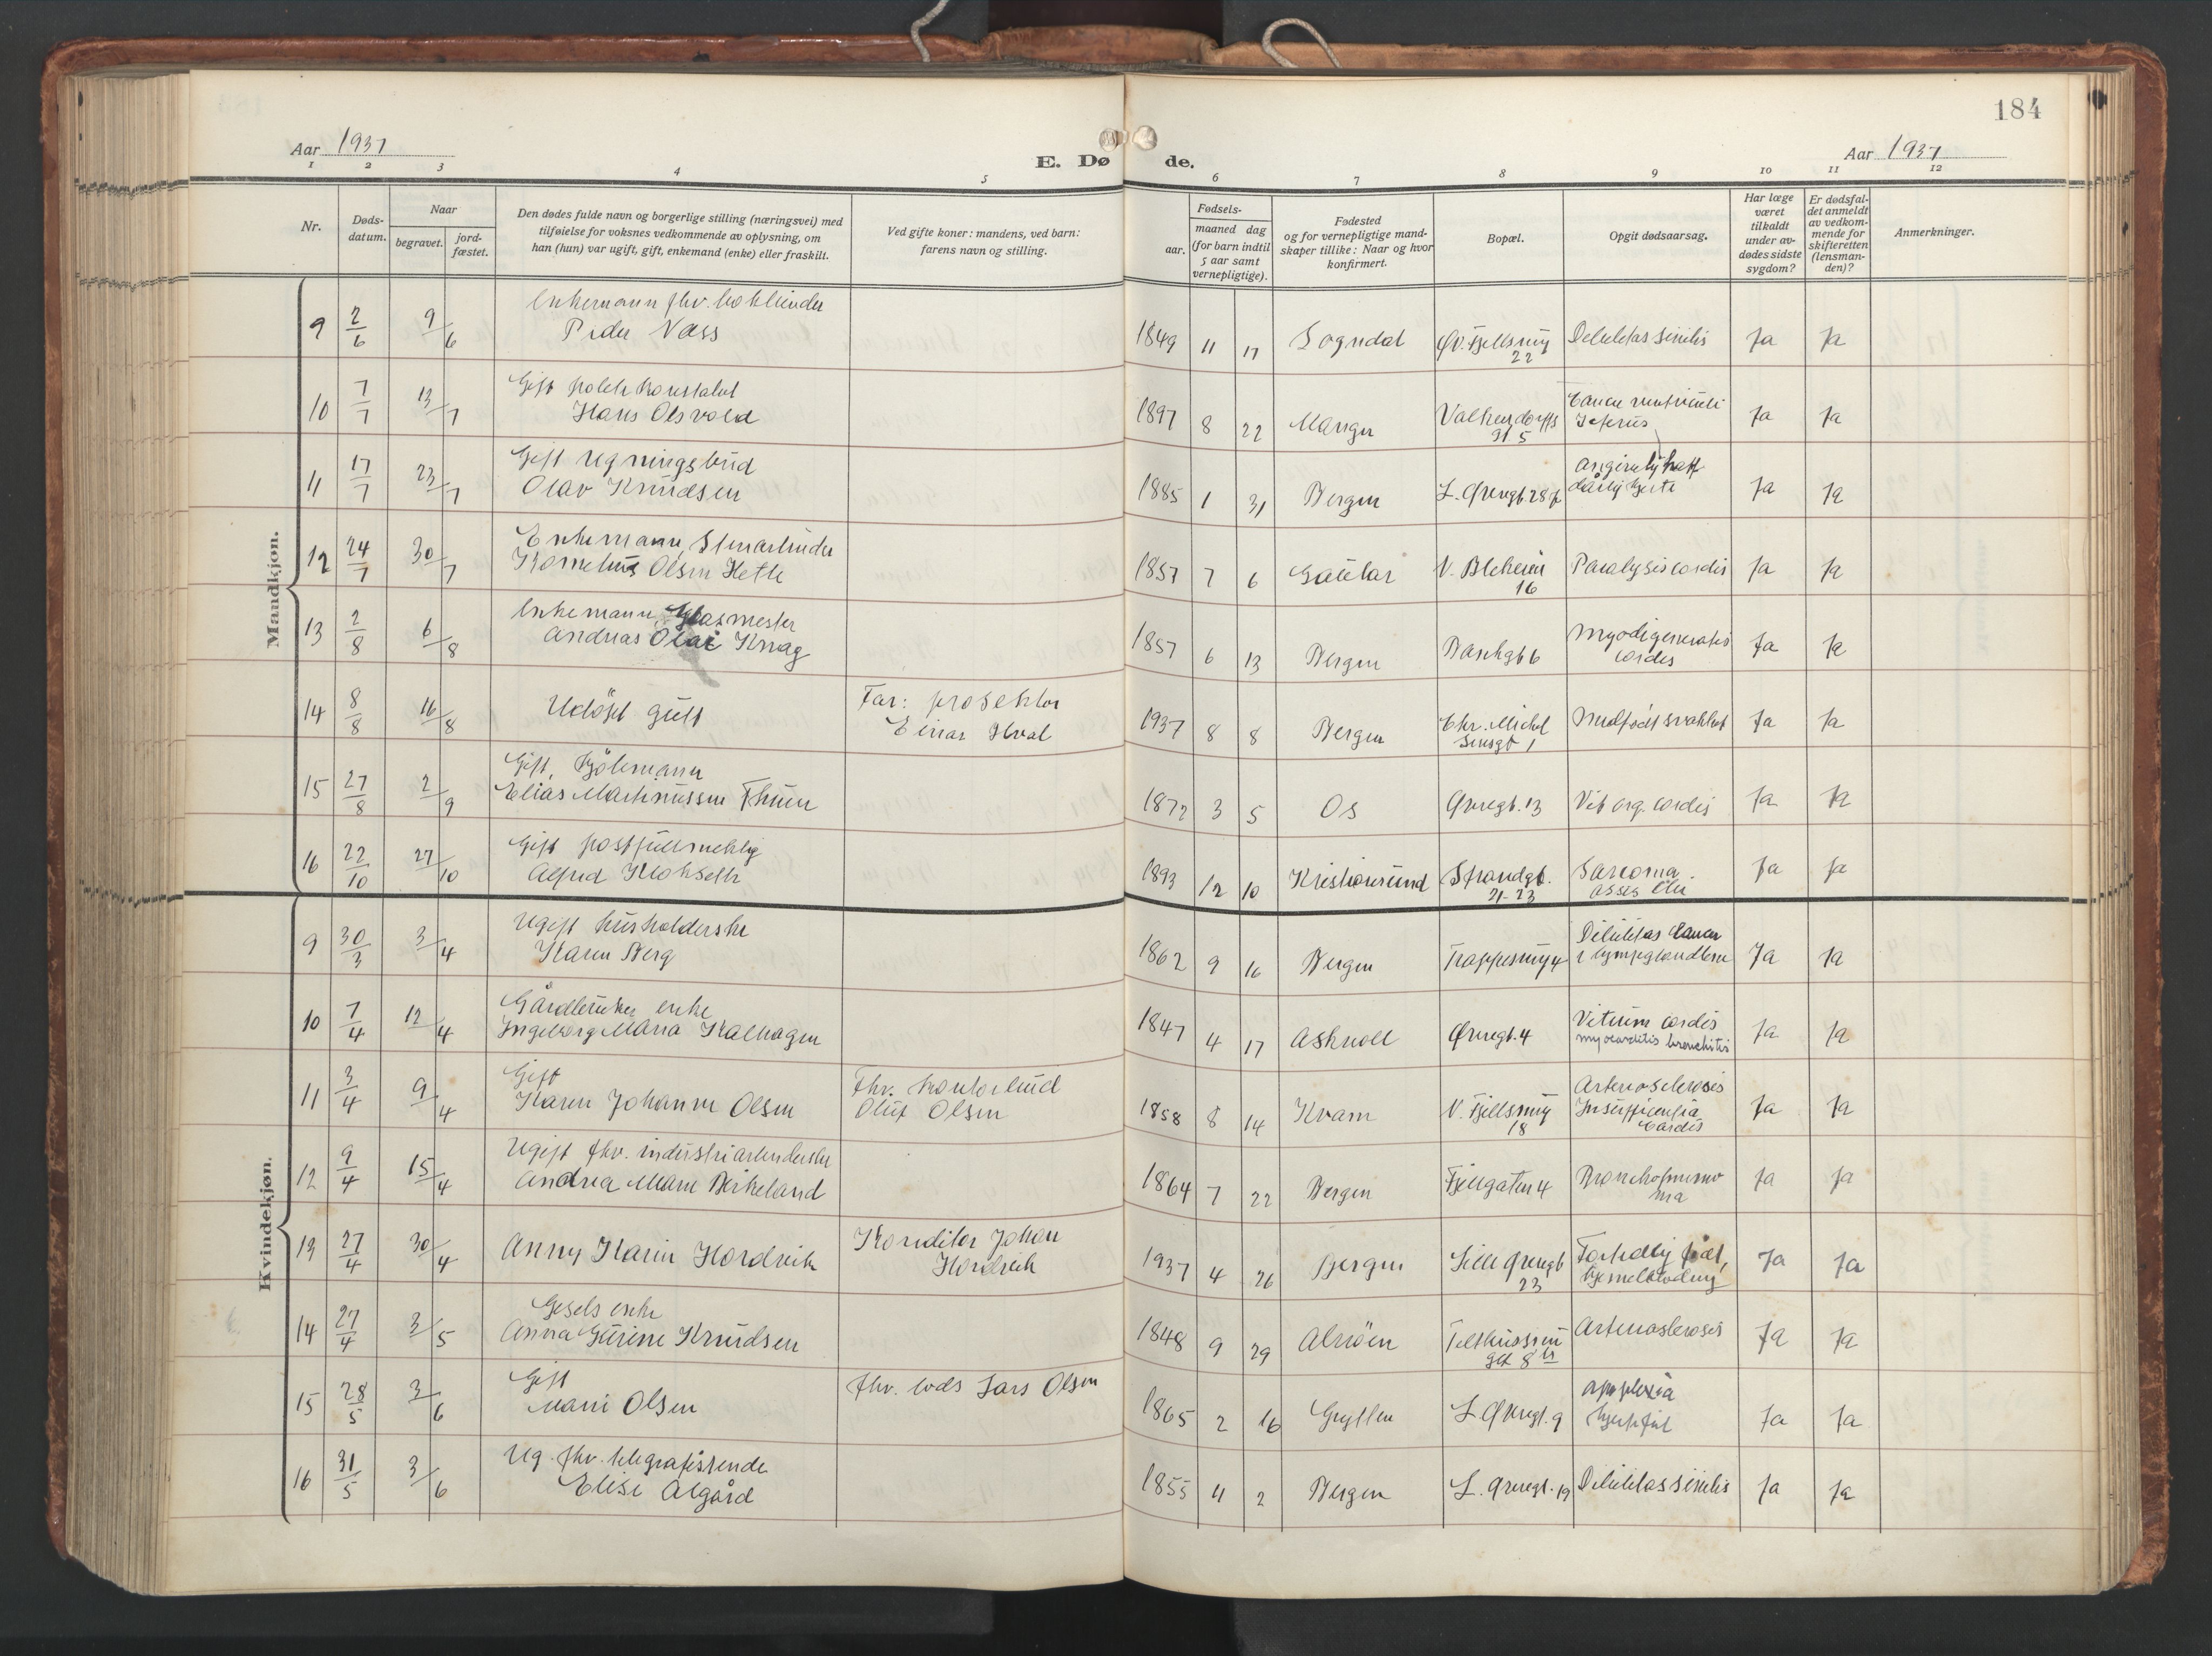 184
Aar 1937
E. Døde.
Aar 1937
1 2 3 4 5 6 7 8 9 10 11 12
Nr.
Døds-
datum.
Naar
begravet.
jord-
fæstet.
Den dødes fulde navn og borgerlige stilling (næringsvei) med
tilføielse for voksnes vedkommende av oplysning, om
han (hun) var ugift, gift, enkemand (enke) eller fraskilt.
Ved gifte koner: mandens, ved barn:
farens navn og stilling.
Fødsels-
aar.
maaned dag
(for barn indtil
5 aar samt
vernepligtige).
Fødested
og for vernepligtige mand-
skaper tillike: Naar og hvor
konfirmert.
Bopæl.
Opgit dødsaarsag.
Har læge
været
tilkaldt
under av-
dødes sidste
sygdom?
Er dødsfal-
det anmeldt
av vedkom-
mende for
skifteretten
(lensman-
den)?
Anmerkninger.
Mandkjøn.
Enkemann fhv.
9 2/6 9/6 Peder Næss 1849 11 17 Sogndal Øv. Fjellsmug 22 Debilitas senilis Ja Ja
Gift politikonstabel
10 7/7 13/7 Hans Olsvold 1897 8 22 Manger Valkendorffs gt 5 Cancer ventriculi Icterus Ja Ja
Gift regningsbud
11 17/7 23/7 Olav Knudsen 1885 1 31 Bergen L. Øvregt. 28 dårlig hjerte Ja Ja
Enkemann, Stuearbeider
12 24/7 30/7 Kornelius Olsen Hetle 1857 7 6 Gaular V. Blekevei 16 Paralysis cordis Ja Ja
Enkemann Glasmester
13 2/8 6/8 Andreas Olai Knag 1857 6 13 Bergen Banegt 6 Myodegeneratio cordis Ja Ja
14 8/8 16/8 Udöpt gutt Far: prosektor Einar Hval 1937 8 8 Bergen Chr. Michelsensgt 1 Medfødt svakhet Ja Ja
Gift, Sjömann
15 27/8 2/9 Elias Martinussen Thuen 1872 3 5 Os Øvregt. 13 Vit. org. cordis Ja Ja
Gift postfullmektig
16 22/10 27/10 Alfred Klokseth 1893 12 10 Kristiansund Strandgt. 21-23 Sarcoma ossis Ja Ja
Kvindekjøn.
Ugift husholderske
9 30/3 3/4 Karen Berg 1862 9 16 Bergen Trappesmug 4 Debilitas Cancer i lympeglandlene Ja Ja
Gårdbruker enke
10 7/4 12/4 Ingeborg Maria Kalhagen 1847 4 17 Askvoll Øvregt. 4 Vitium cordis myocarditis bronchitis Ja Ja
Gift
11 3/4 9/4 Karen Johanne Olsen Fhv. kontorbud Oluf Olsen 1858 8 14 Kvam V. Fjellsmug 18 Arteriosclerosis Insufficientia Cardis Ja Ja
Ugift fhv. industriarbeiderske
12 9/4 15/4 Andrea Marie Birkeland 1864 7 22 Bergen Fjellgaten 4 Bronchopneumoma Ja Ja
13 27/4 30/4 Anny Karin Hordvik Konditor Johan Hordvik 1937 4 26 Bergen Lille Øvregt 23 Fortidlig født, hjerneblødning Ja Ja
Gesels enke
14 27/4 3/5 Anna Gurine Knudsen 1848 9 29 Alvöen Telthussmuget 8 b Arterioslerosis Ja Ja
Gift
15 28/5 3/6 Marie Olsen fhv. lods Lars Olsen 1865 2 16 Gryllen L. Øvregt. 9 Apoplexia hjertefeil Ja Ja
Ug. fhv. telegrafistinde
16 31/5 3/6 Elise Ålgård 1855 4 2 Bergen L. Øvregt. 19 Debilitas senilis Ja Ja